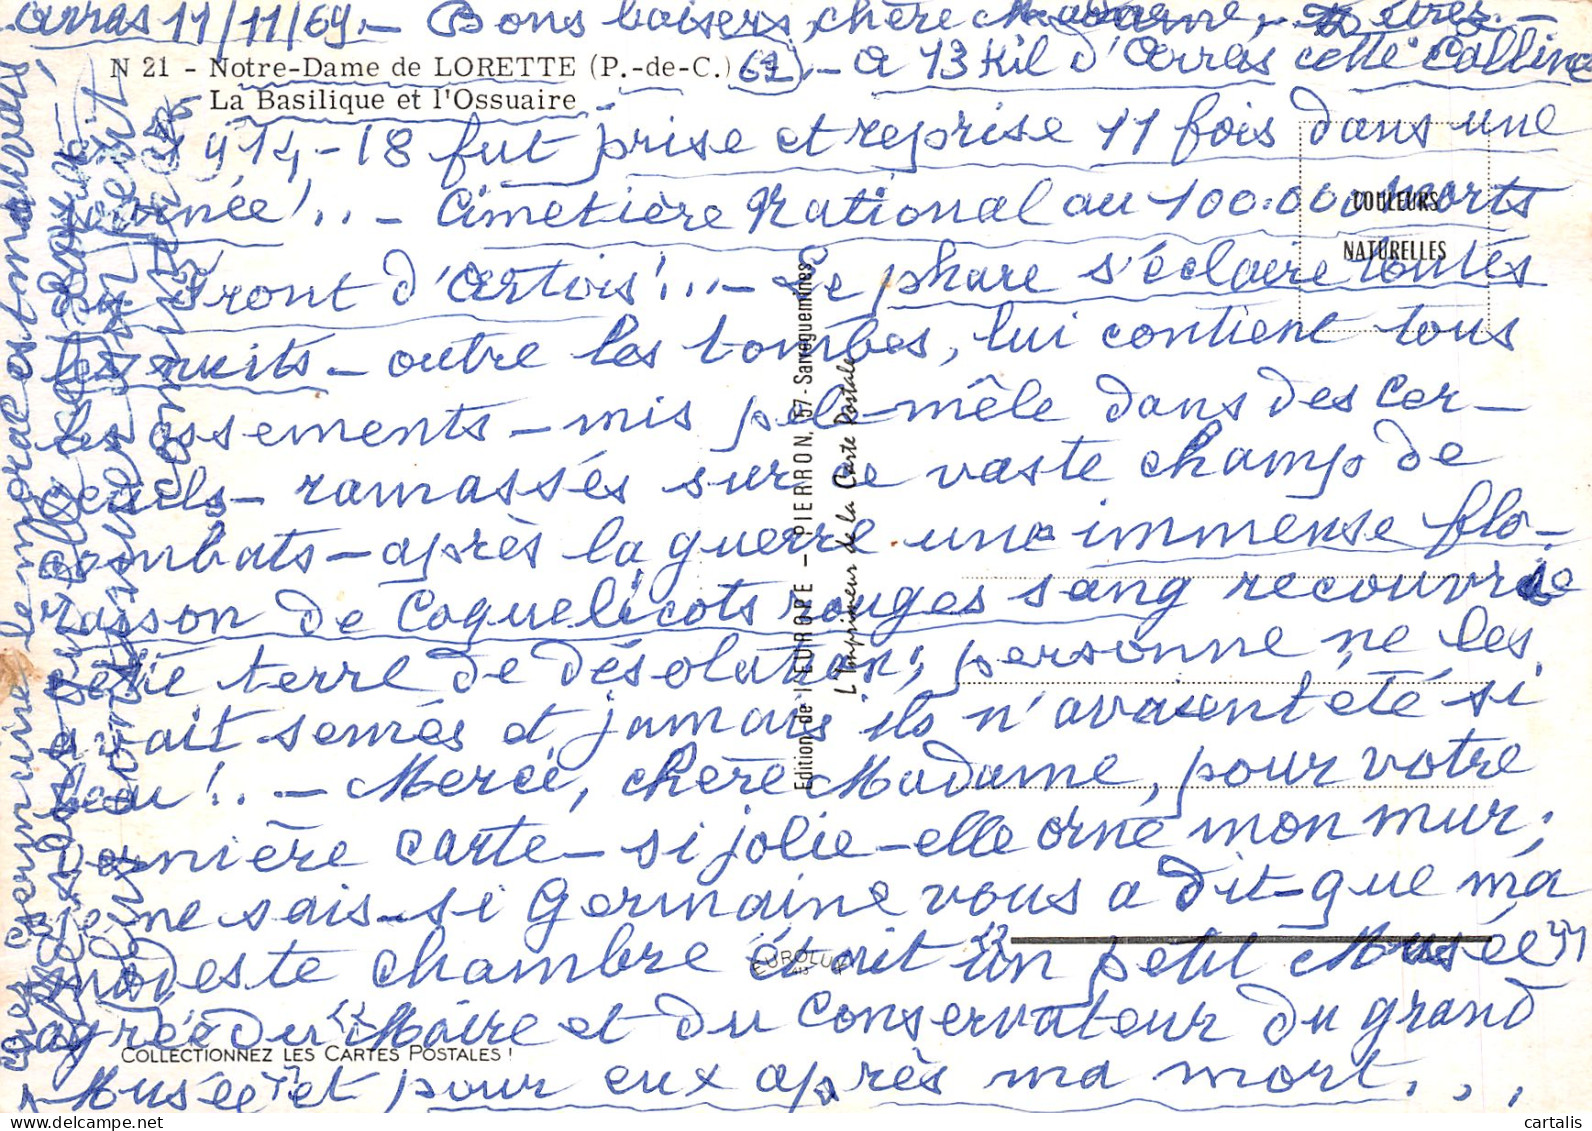 Arras 11/11/69 - Bons baisers, chère Madame, -
N 21 - Notre-Dame de LORETTE (P.-de-C.) (62). - à 13 Kil d'Arras cette Colline
La Basilique et l'Ossuaire
14-18 fut prise et reprise 11 fois dans une
année!.. - Cimetière National au 100.000 morts
COULEURS
NATURELLES
Front d'Artois!... - Le phare s'éclaire toutes
les nuits - outre les tombes, lui contient tous
les ossements - mis pêle-mêle dans des Cer-
cueils - ramassés sur ce vaste champ de
Combats - après la guerre une immense flo-
raison de Coquelicots rouges sang recouvrit
cette terre de désolation; personne ne les
avait semés et jamais ils n'avaient été si
beau!.. - Merci, chère Madame, pour votre
dernière carte - si jolie - elle orne mon mur;
je ne sais - si Germaine vous a dit - que ma
modeste chambre était "un petit Musée"
agréé du "Maire et du Conservateur du grand
Musée" et pour eux après ma mort...
mine le moral est mauvais
Edition de l'EUROPE - PIERRON, 57-Sarreguemines
L'Imprimeur de la Carte Postale
EUROLUX
COLLECTIONNEZ LES CARTES POSTALES !
cartalis